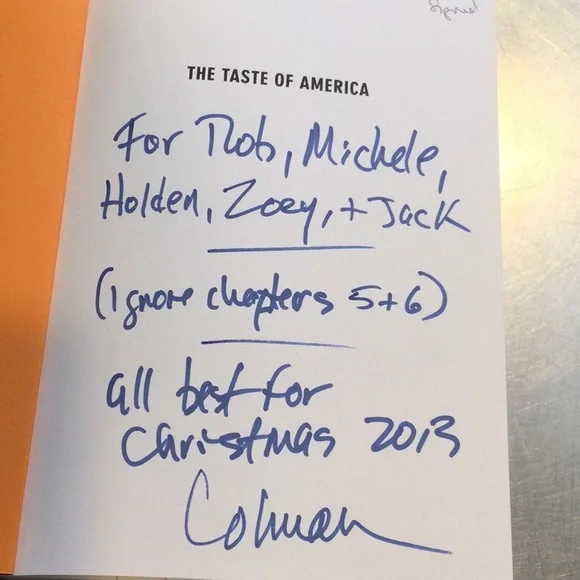 Signed
THE TASTE OF AMERICA
For Rob, Michele,
Holden, Zoey, + Jack
(Ignore chapters 5+6)
all best for
Christmas 2013
Colman